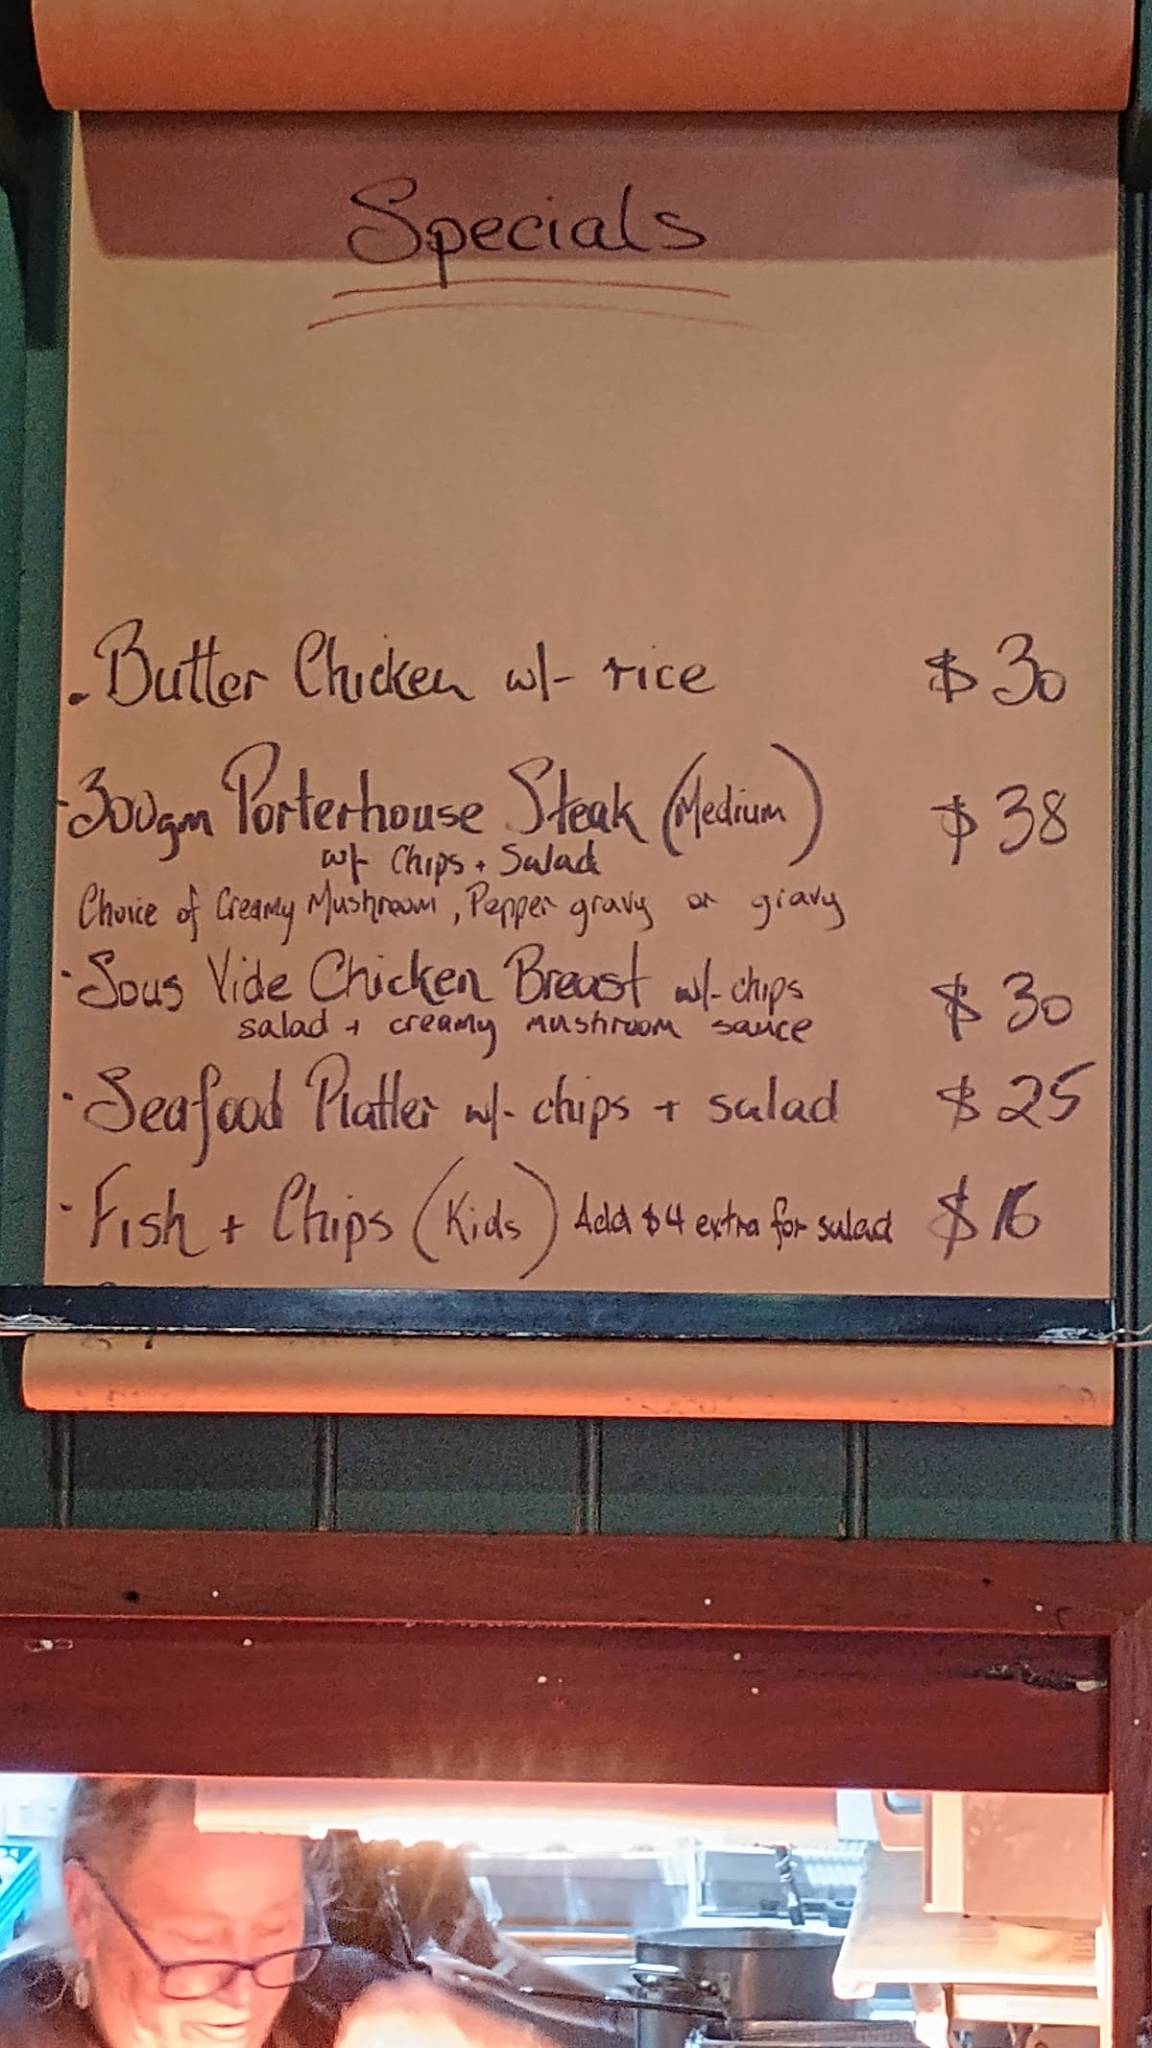 Specials
. Butter Chicken w/- rice $30
· 300gm Porterhouse Steak (Medium) $38
w/- Chips + Salad
Choice of Creamy Mushroom, Pepper gravy or gravy
· Sous Vide Chicken Breast w/- chips $30
salad + creamy mushroom sauce
· Seafood Platter w/- chips + salad $25
· Fish + Chips (Kids) Add $4 extra for salad $16